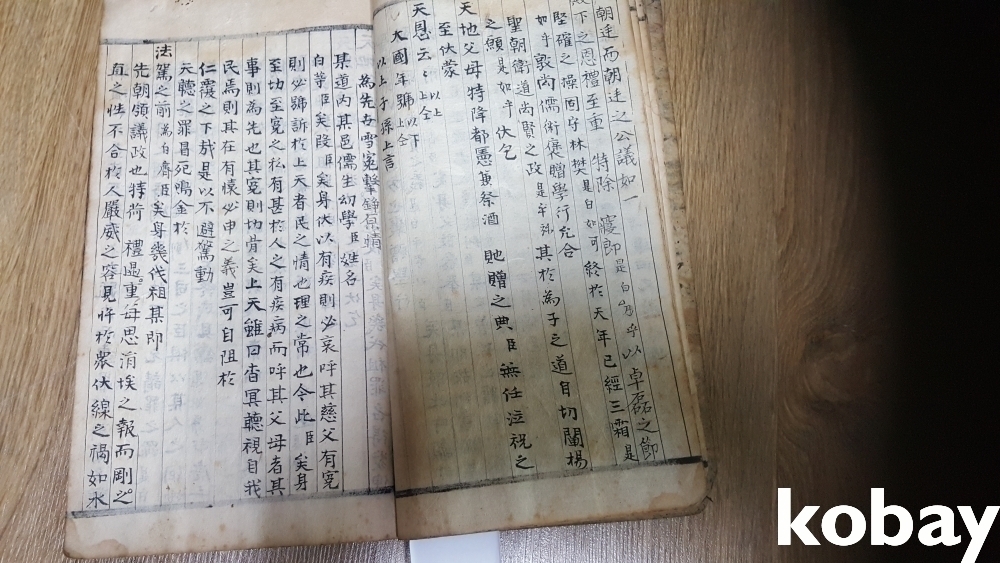 朝廷而朝廷之公議如一
殿下之恩禮至重 特除 寢郎是白乎乎以卓磊之節
堅確之操固守林樊是白如可終於天年已經三霜是
如乎敦尙儒術褒贈學行允合
聖朝衛道尙賢之政是乎矛其於爲子之道自切闡揚
之願是如乎 伏乞
天地父母特降都憲兼祭酒 貤贈之典臣無任泣祝之
至伏蒙
天恩云〻以上仝
大國年號以下上仝
以上子孫上言
爲先世雪冤擊錚原情
某道內某邑儒生幼學臣姓名
白等臣矣段臣矣身伏以有疾則必哀呼其慈父有冤
則必號訴於上天者民之情也理之常也今此臣矣身
至切至冤之私有甚於人之有疾病而呼其父母者其
事則爲先也其冤則切骨矣上天雖曰杳冥聽視自我
民焉則其在有懷必申之義豈可自阻於
仁覆之下於是以不避駕動
天聽之罪冒死鳴金於
法駕之前爲白齊臣矣身幾代祖某即
先朝領議政也特荷 禮遇重每思涓埃之報而剛
直之性不合於人嚴威之容見忤於衆伏線之禍如水
kobay